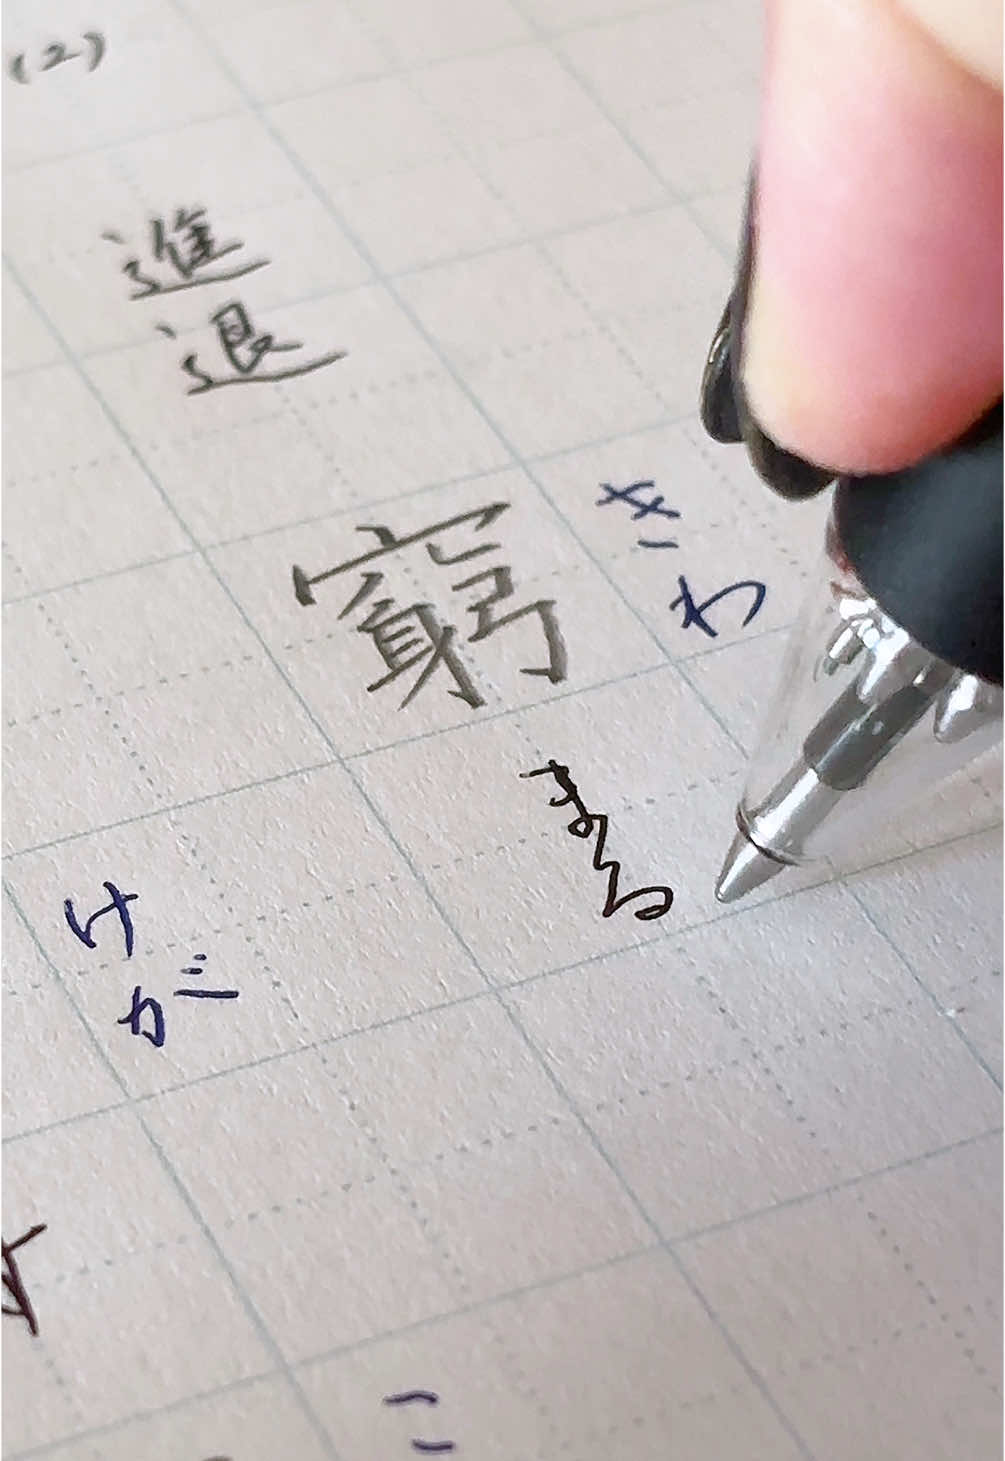 (2)
進退
窮まる
きわ
けが
こ